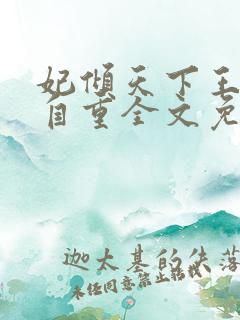 妃倾天下王
自重全文免
迦太基的失落
未经同意禁止转载